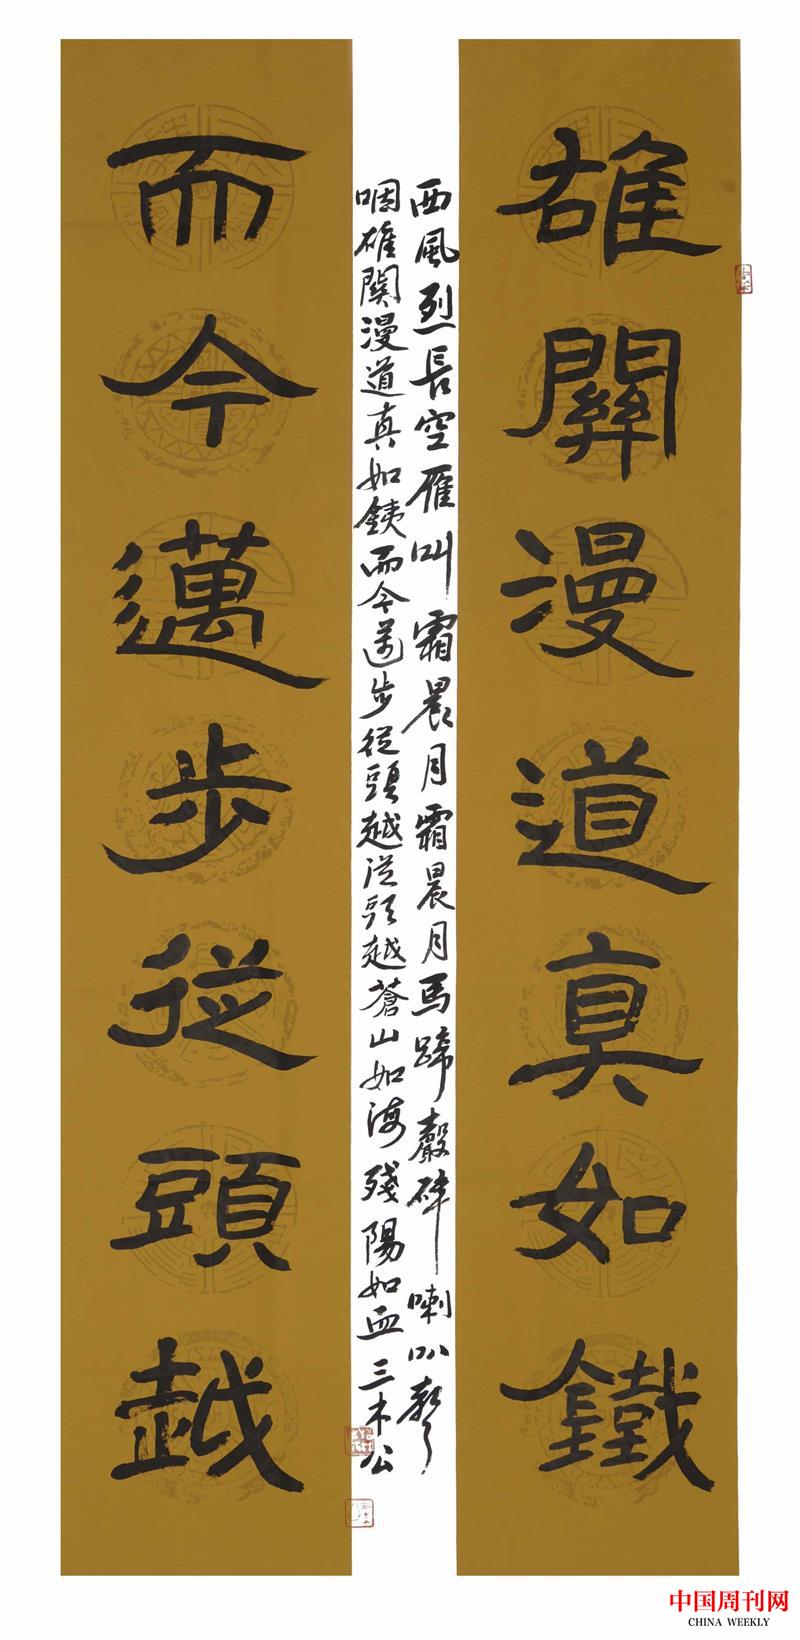 雄關漫道真如鐵
西風烈長空雁叫霜晨月霜晨月馬蹄聲碎喇叭聲
咽雄関漫道真如鉄而今邁步從頭越從頭越蒼山如海殘陽如血三木公
而今邁步從頭越
中国周刊网
CHINA WEEKLY